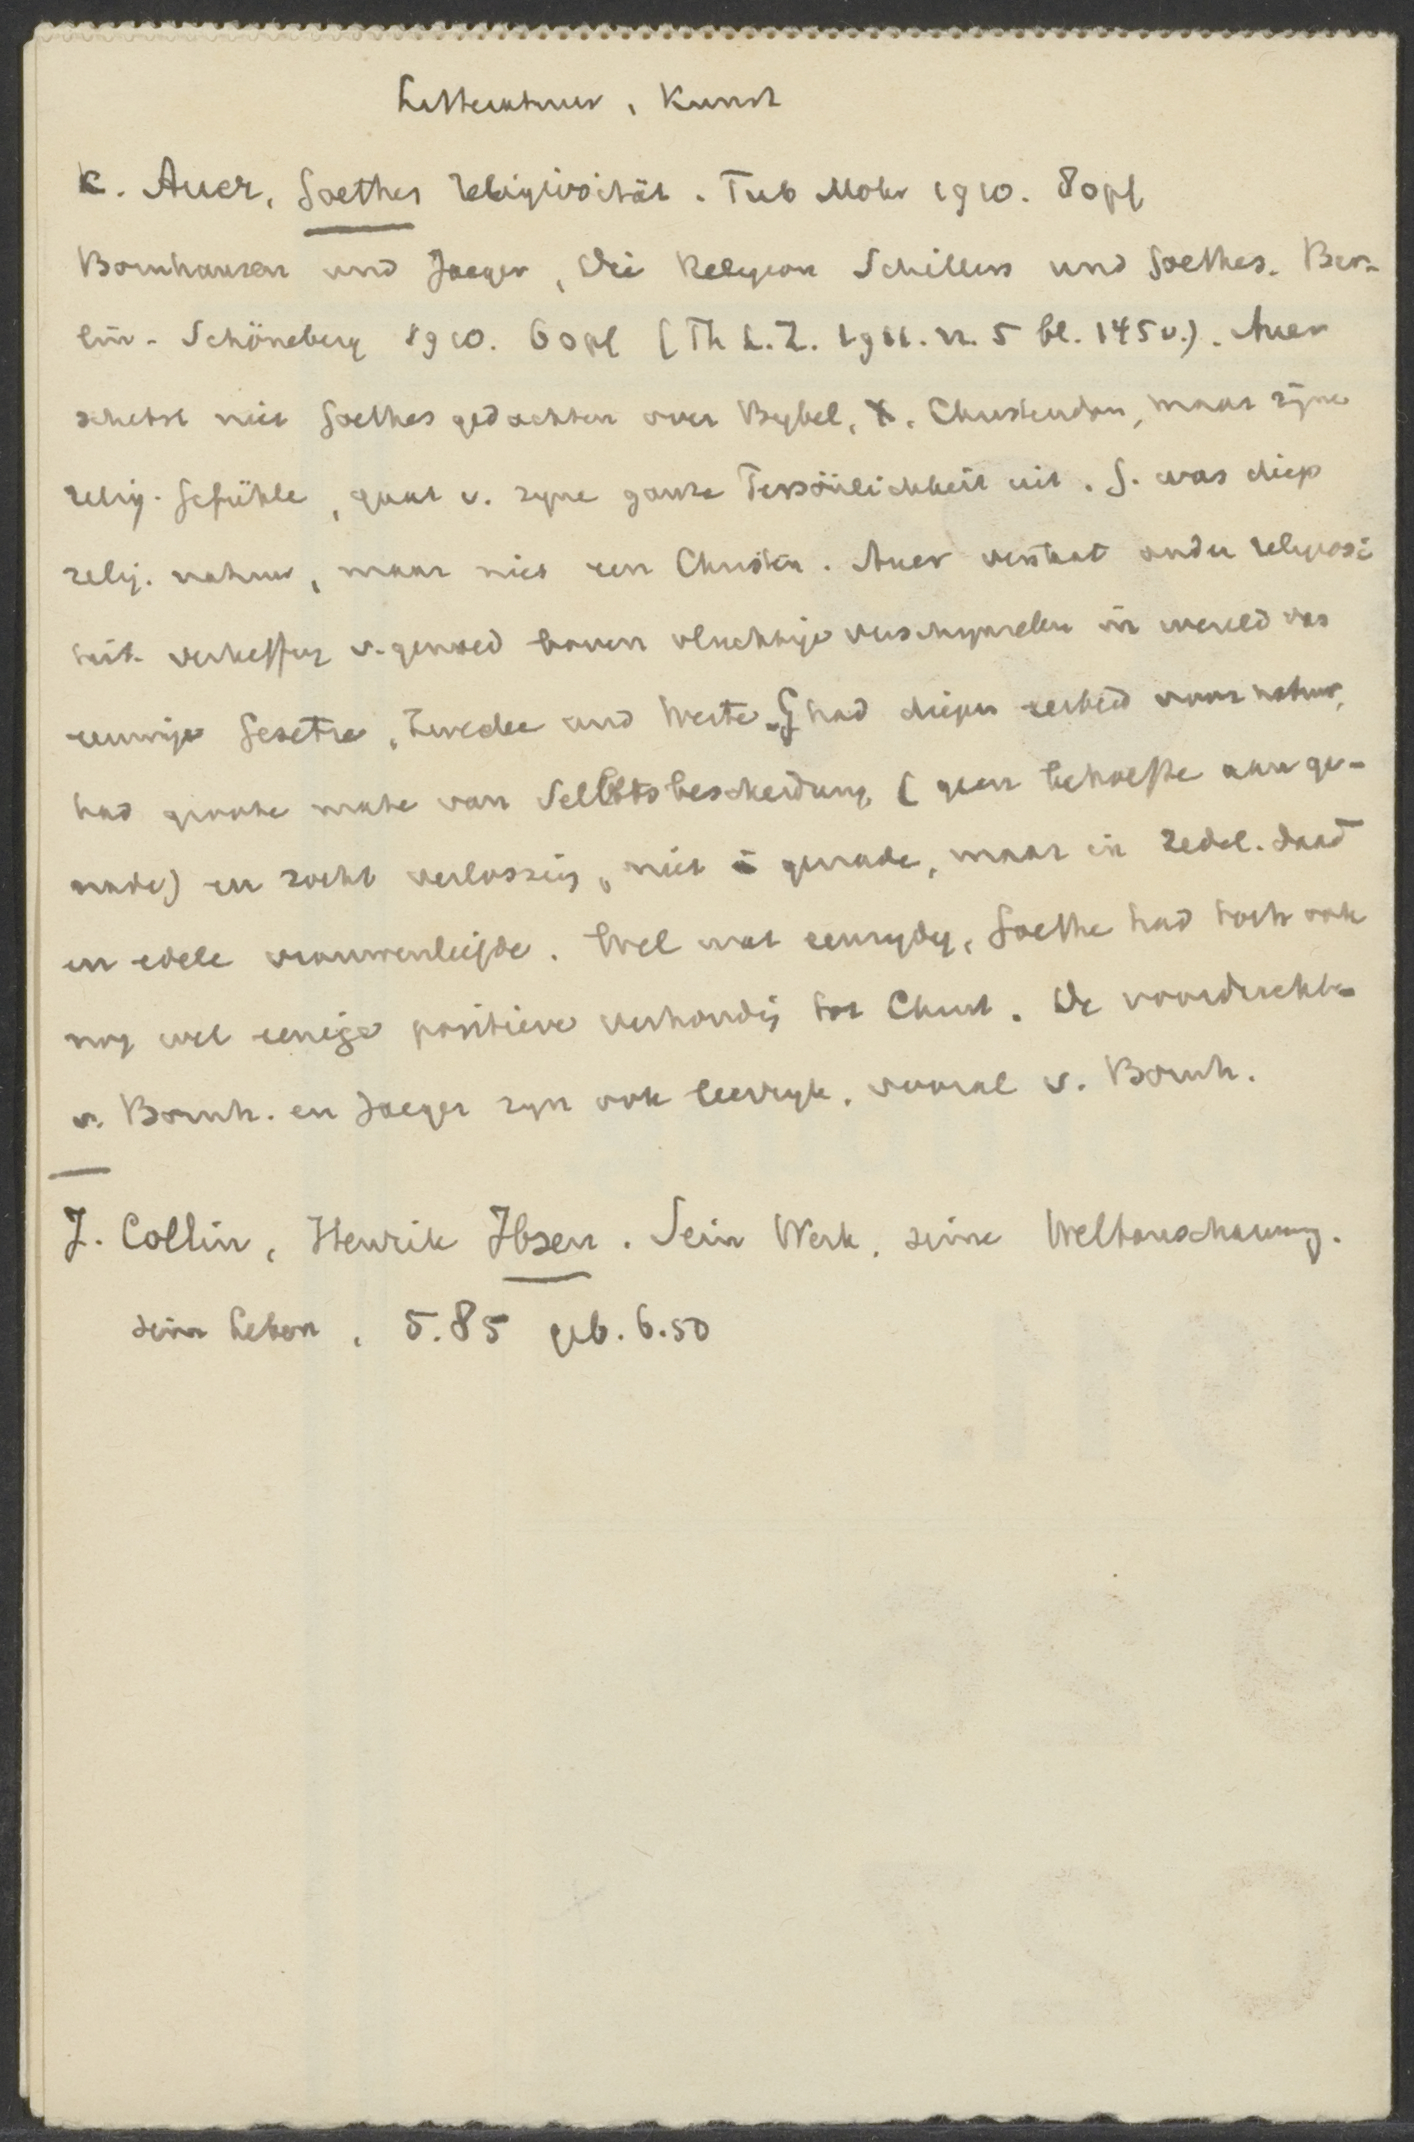 Litteratuur, Kunst
K. Auer, Goethes Religiosität. Tub Mohr 1910. 80 pf
Bornhausen und Jaeger, Die Religion Schillers und Goethes. Ber-
lin-Schöneberg 1910. 60 pf (Th L.Z. 1911. n. 5 bl. 145 v.). Auer
schetst niet Goethes gedachten over Bybel, X, Christendom, maar zijne
relig. Gefühle, gaat v. zyne ganze Persönlichkeit uit. G. was diep
relig. natuur, maar niet een Christen. Auer verstaat onder religiosi
teit verheffing v. gemoed boven vluchtige verschynselen in wereld van
eeuwige Gesetze, Zwecke und Werte. G had diepen eerbied voor natuur,
had groote mate van Selbstbescheidung (geen behoefte aan ge-
nade) en zocht verlossing, niet genade, maar in zedel. daad
en edele vrouwenliefde. Wel wat eenzydig, Goethe had toch ook
nog wel eenige positieve verhoudg tot Christ. De voordrachten
v. Bornh. en Jaeger zyn ook leerryk, vooral v. Bornh.
J. Collin, Henrik Ibsen. Sein Werk, seine Weltanschauung.
sein Leben, 5.85 geb. 6.50